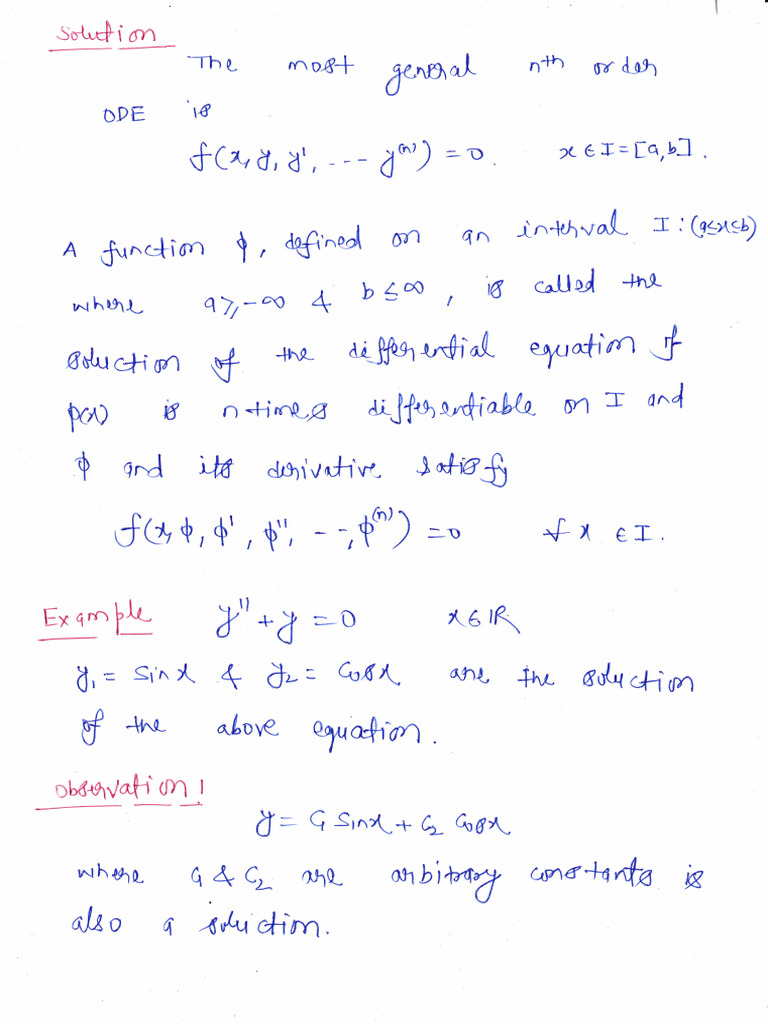 Solution
The most general nth order
ODE is
f(x, y, y', --- y⁽ⁿ⁾) = 0. x ∈ I = [a, b].
A function ϕ, defined on an interval I : (a≤x≤b)
where a ≥, -∞ & b ≤ ∞, is called the
solution of the differential equation if
ϕ(x) is n-times differentiable on I and
ϕ and its derivative satisfy
f(x, ϕ, ϕ', ϕ'', --, ϕ⁽ⁿ⁾) = 0 ∀ x ∈ I.
Example y'' + y = 0 x ∈ IR
y₁ = Sin x & y₂ = Cos x are the solution
of the above equation.
Observation !
y = C₁ Sin x + C₂ Cos x
where C₁ & C₂ are arbitrary constants is
also a solution.